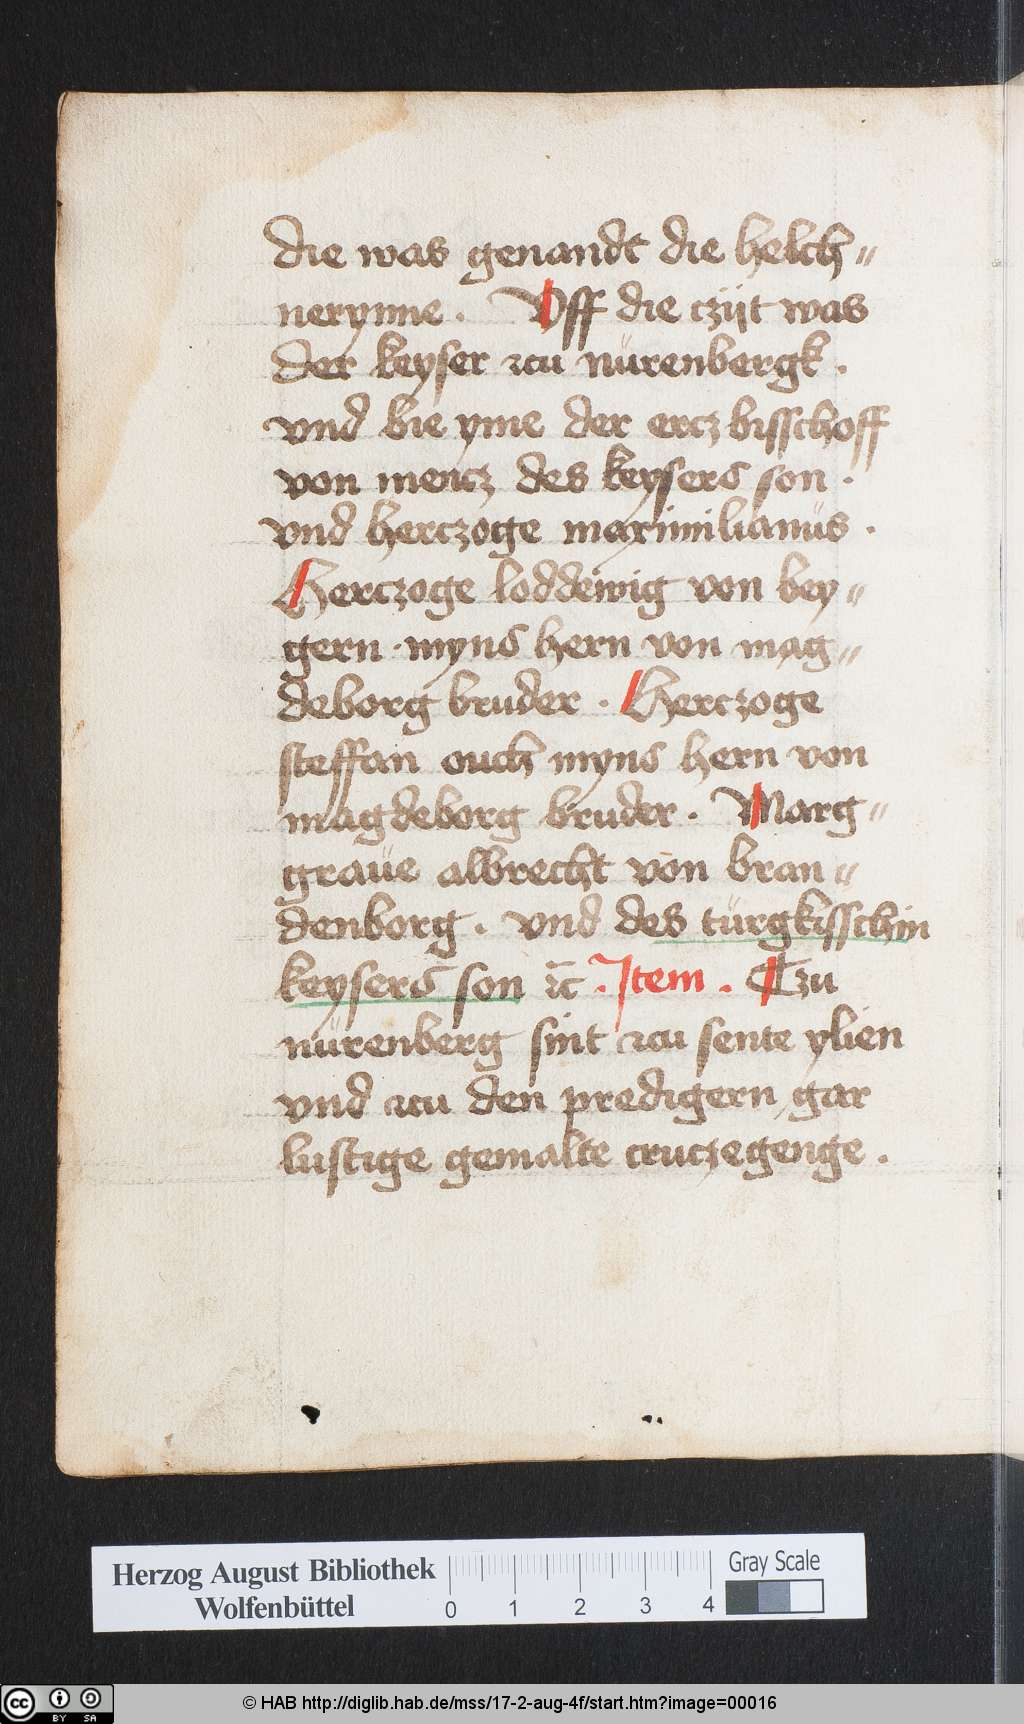 die was genandt die helch〃
nerynne . Vff die czijt was
der keyser zcu nürenbergk .
vnd bie yme der ercz bisschoff
von mencz des keysers son .
vnd herczoge maximilianüs .
Herczoge loddewig von bey〃
gern · myns hern von mag〃
deborg bruder . Herczoge
steffan ouch myns hern von
magdeborg bruder . Marg〃
graue albrecht von bran〃
denborg . vnd des türgkisschin
keysers son ⁊c̄ . Item . Czu
nürenberg sint zcu sente ylien
vnd zcu den predigern gar
lustige gemalte cruczegenge .
Herzog August Bibliothek
Wolfenbüttel
0 1 2 3 4
Gray Scale
cc BY SA
© HAB http://diglib.hab.de/mss/17-2-aug-4f/start.htm?image=00016